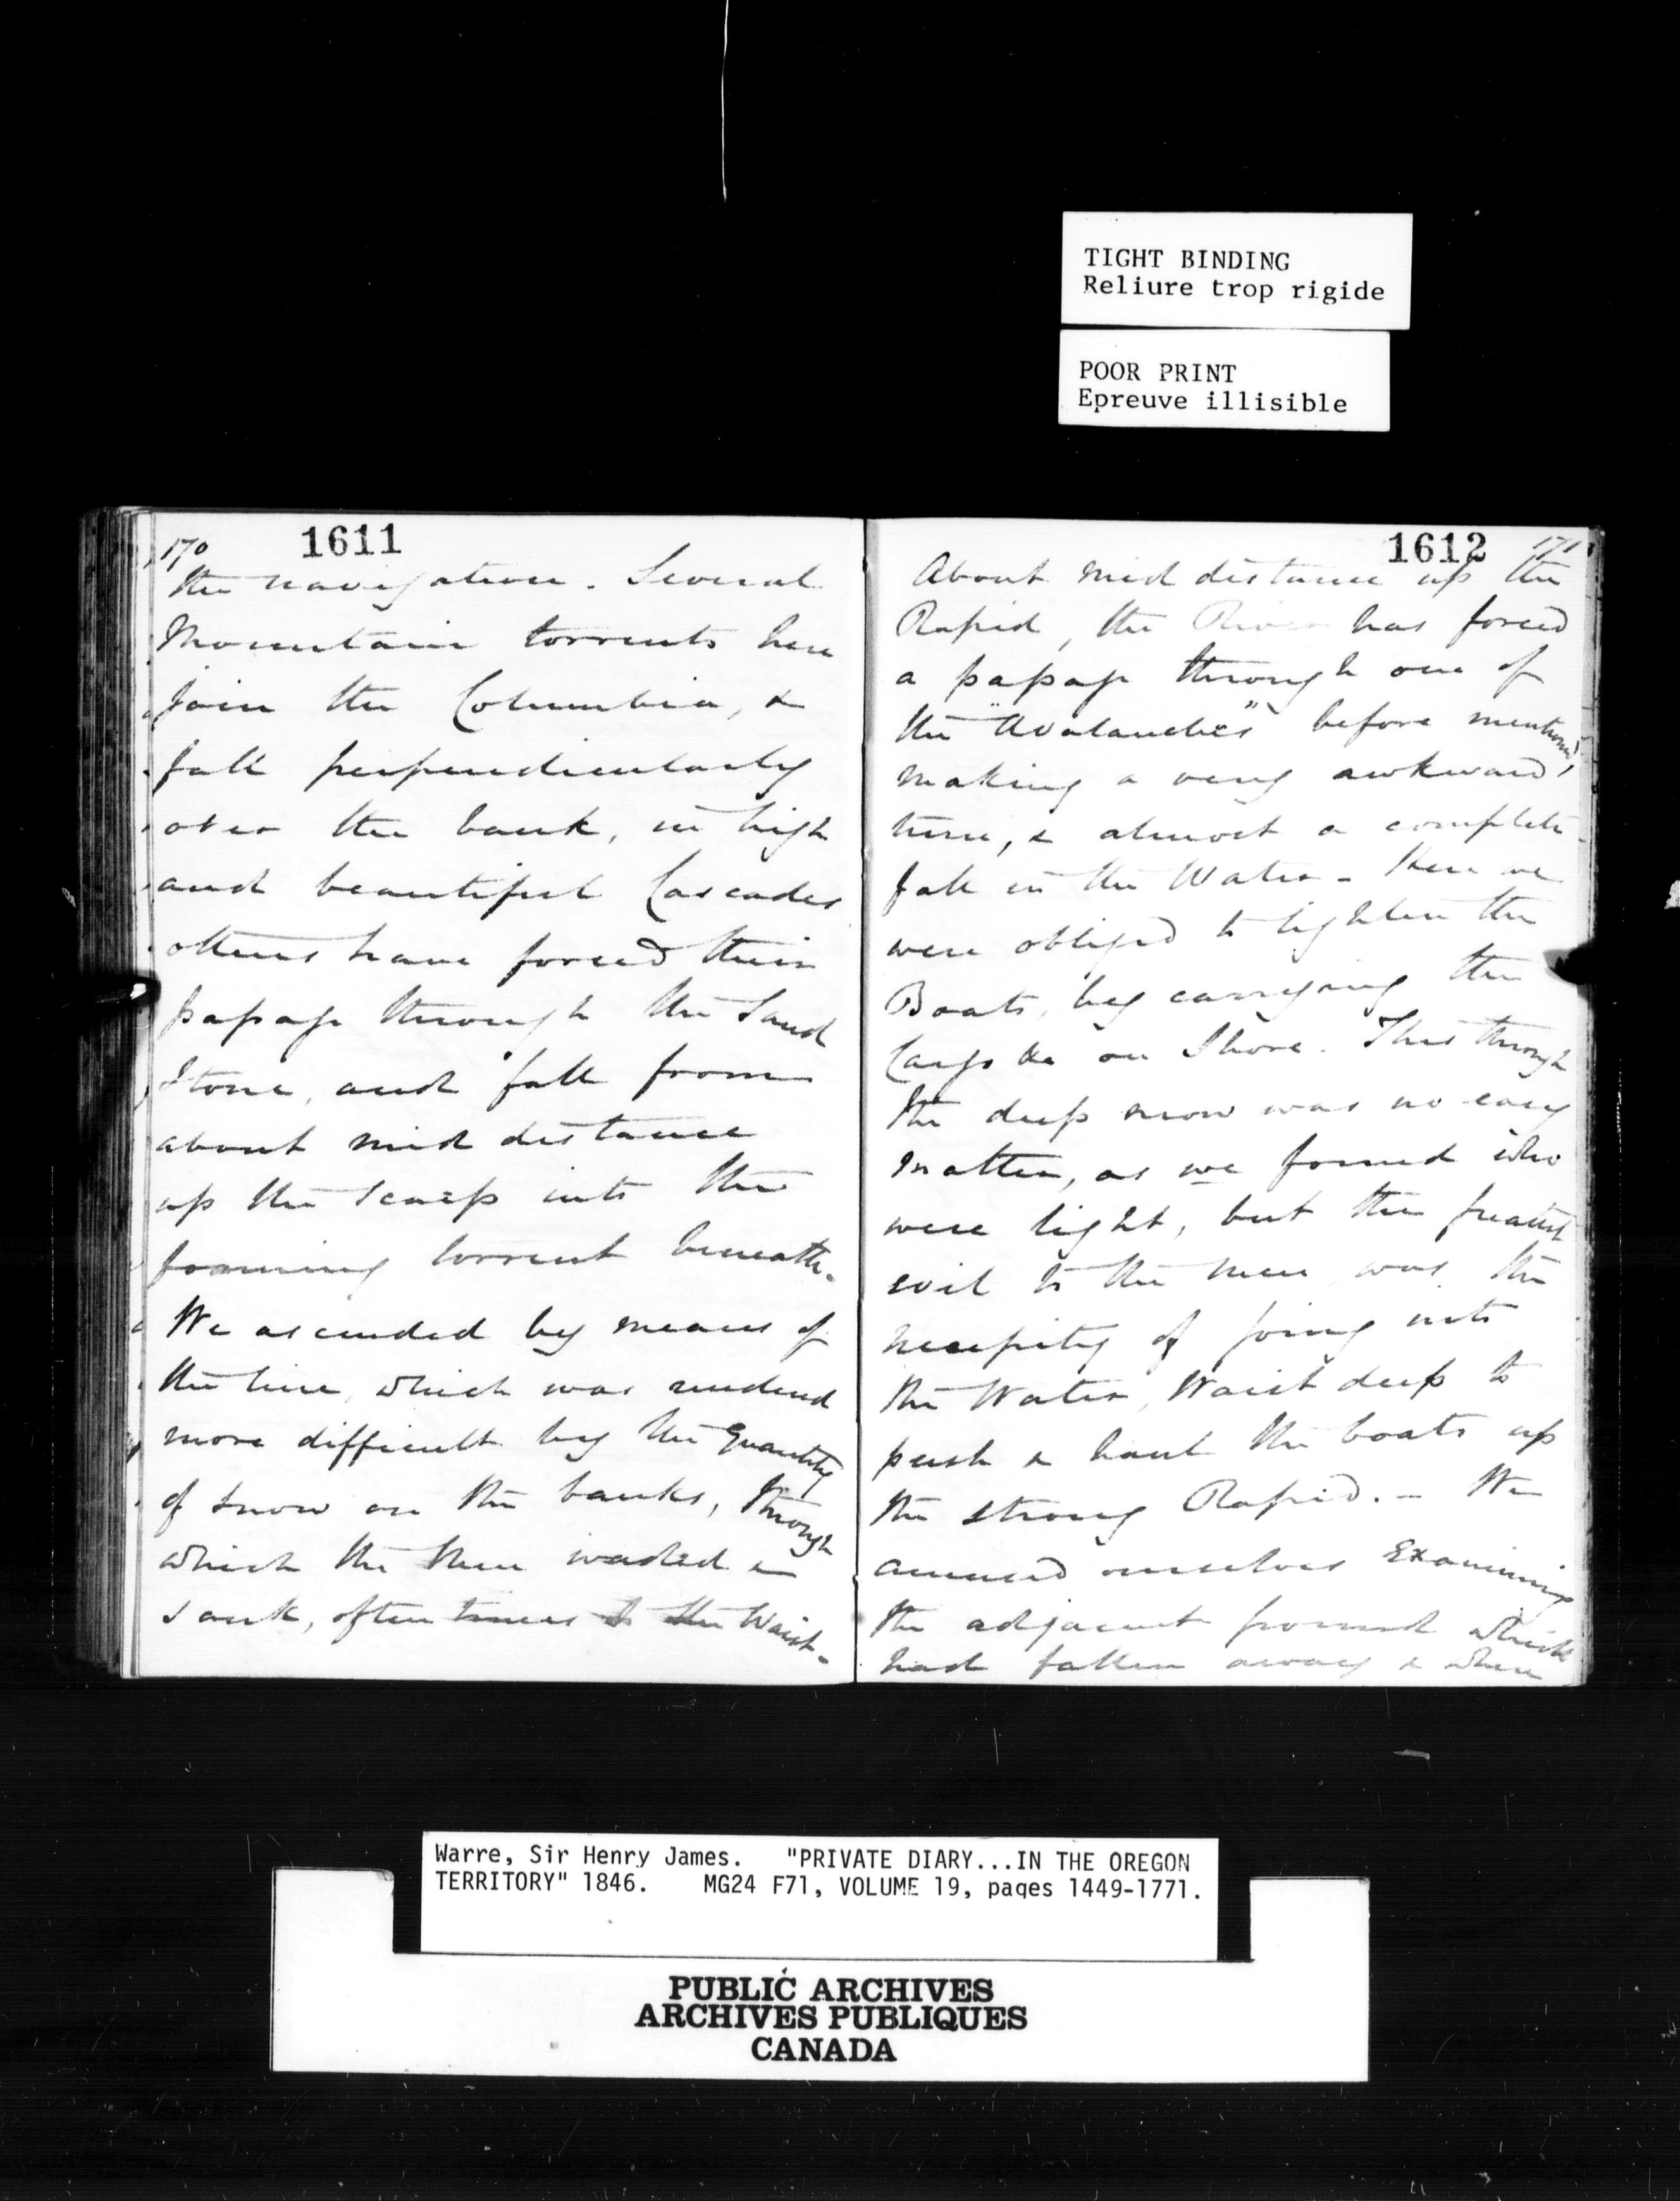 TIGHT BINDING
Reliure trop rigide
POOR PRINT
Epreuve illisible
170
1611
the navigation. Several
Mountain torrents here
join the Columbia, &
fall perpendicularly
over the bank, in high
and beautiful Cascades
others have forced their
passage through the Sand
Stone, and fall from
about mid distance
up the scarp into the
foaming torrent beneath.
We ascended by means of
the line, which was rendered
more difficult by the Quantity
of snow on the banks, through
which the Men waded &
sank, often times to the Waist.
1612
171
About mid distance up the
Rapid, the River has forced
a passage through one of
the "Avalanches" before mentioned,
making a very awkward
turn, & almost a complete
fall in the Water - Here we
were obliged to lighten the
Boats, by carrying the
Cargo &c on Shore. This through
the deep snow was no easy
matter, as we found who
were light, but the greatest
evil to the men was the
necessity of going into
the Water, Waist deep to
push & haul the boats up
the strong Rapid. - We
amused ourselves Examining
the adjacent ground which
had fallen away & where
Warre, Sir Henry James. "PRIVATE DIARY...IN THE OREGON
TERRITORY" 1846. MG24 F71, VOLUME 19, pages 1449-1771.
PUBLIC ARCHIVES
ARCHIVES PUBLIQUES
CANADA